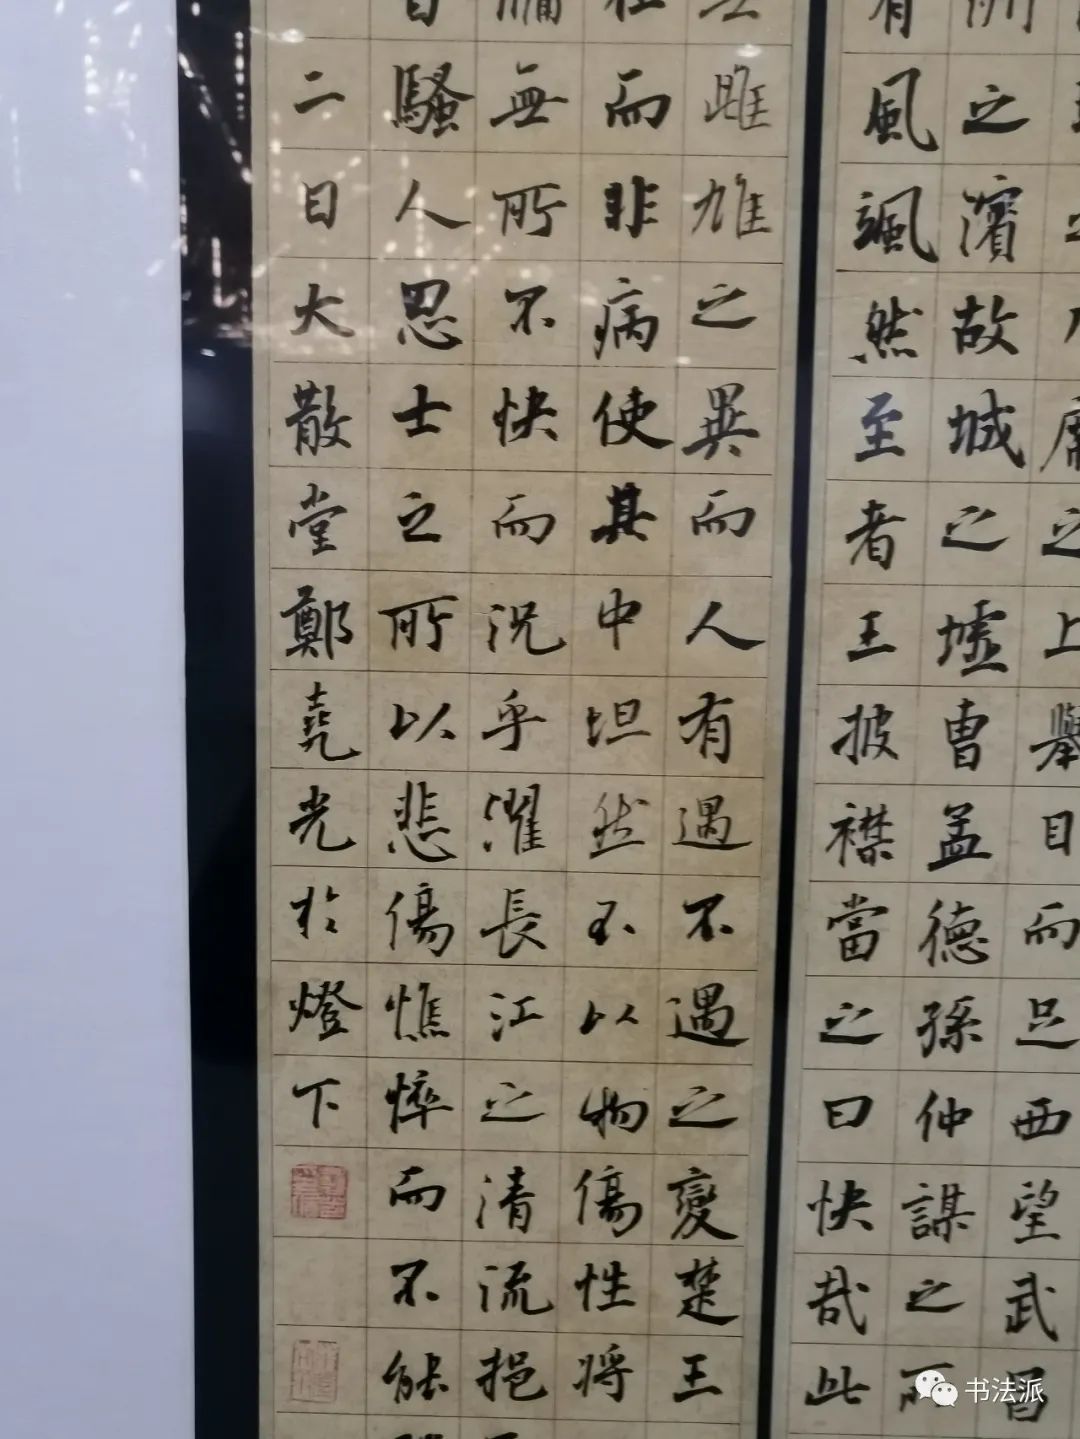 席之上舉目而足西望武昌
洲之濱故城之墟曹孟德孫仲謀之所
有風颯然至者王披襟當之曰快哉此
雌雄之異而人有遇不遇之變楚王
而非病使其中坦然不以物傷性將
牖無所不快而況乎濯長江之清流挹
騷人思士之所以悲傷憔悴而不能
二日大散堂鄭堯光於燈下
书法派